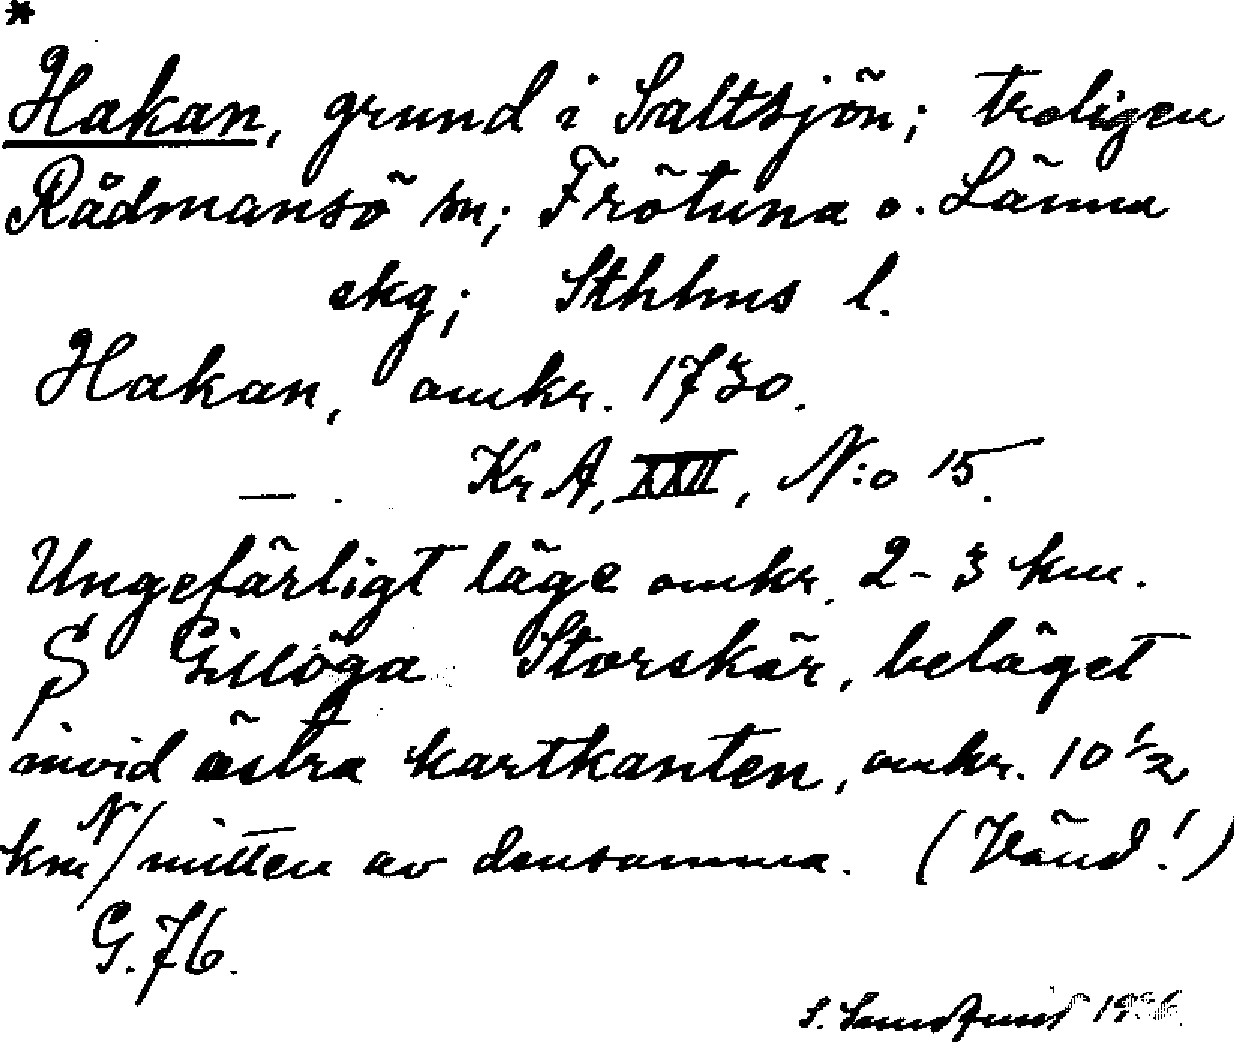 *
Hakan, grund i Saltsjön; troligen
Rådmansö sn; Frötuna o. Länna
skg; Sthlms l.
Hakan, omkr. 1730.
— . Kr A, XXII, N:o 15.
Ungefärligt läge omkr. 2-3 km.
S Gillöga Storskär, beläget
invid östra kartkanten, omkr. 10 1/2
km N/mitten av densamma. (Vänd!)
G. 76.
S.